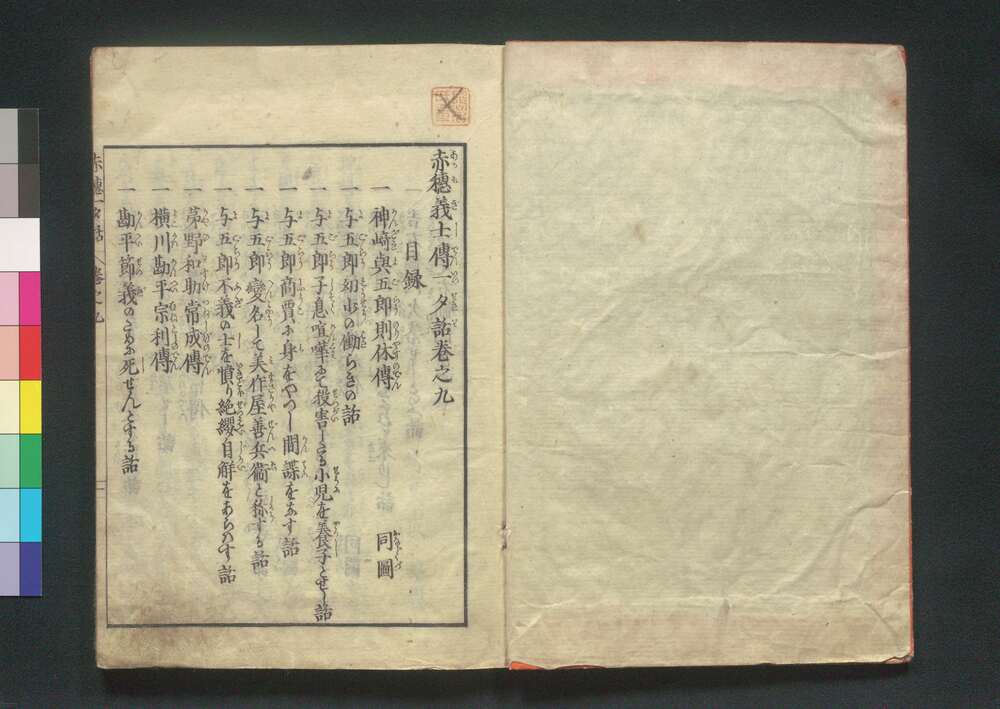 赤穂義士傳一夕話巻之九
目録
一 神崎與五郎則休傳 同圖
一 与五郎幼少の働らきの話
一 与五郎子息喧嘩にて殺害したる小児を養子とせし話
一 与五郎商賈に身をやつし間諜をなす話
一 与五郎變名して美作屋善兵衞と称する話
一 与五郎不義の士を憤り絶纓自解をあらハす話
一 茅野和助常成傳
一 横川勘平宗利傳
一 勘平節義のために死せんとする話
赤穂一夕話 巻之九